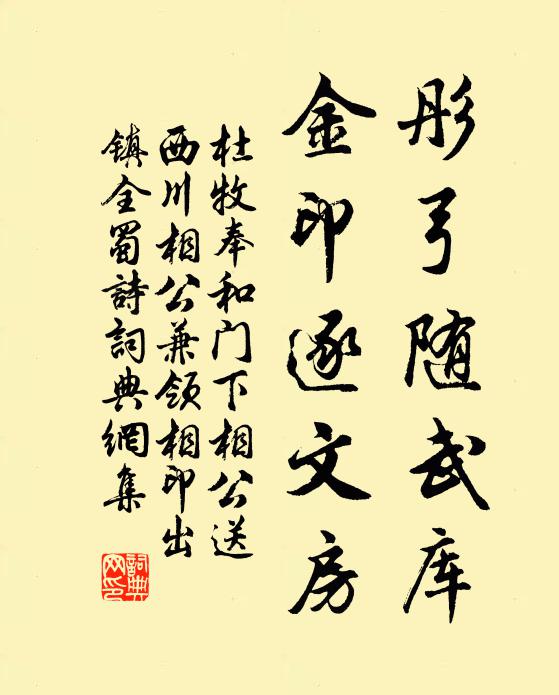 彤弓随武库
金印逐文房
杜牧奉和门下相公送
西川相公兼领相印出
镇全蜀詩詞典網集
詞典
网印